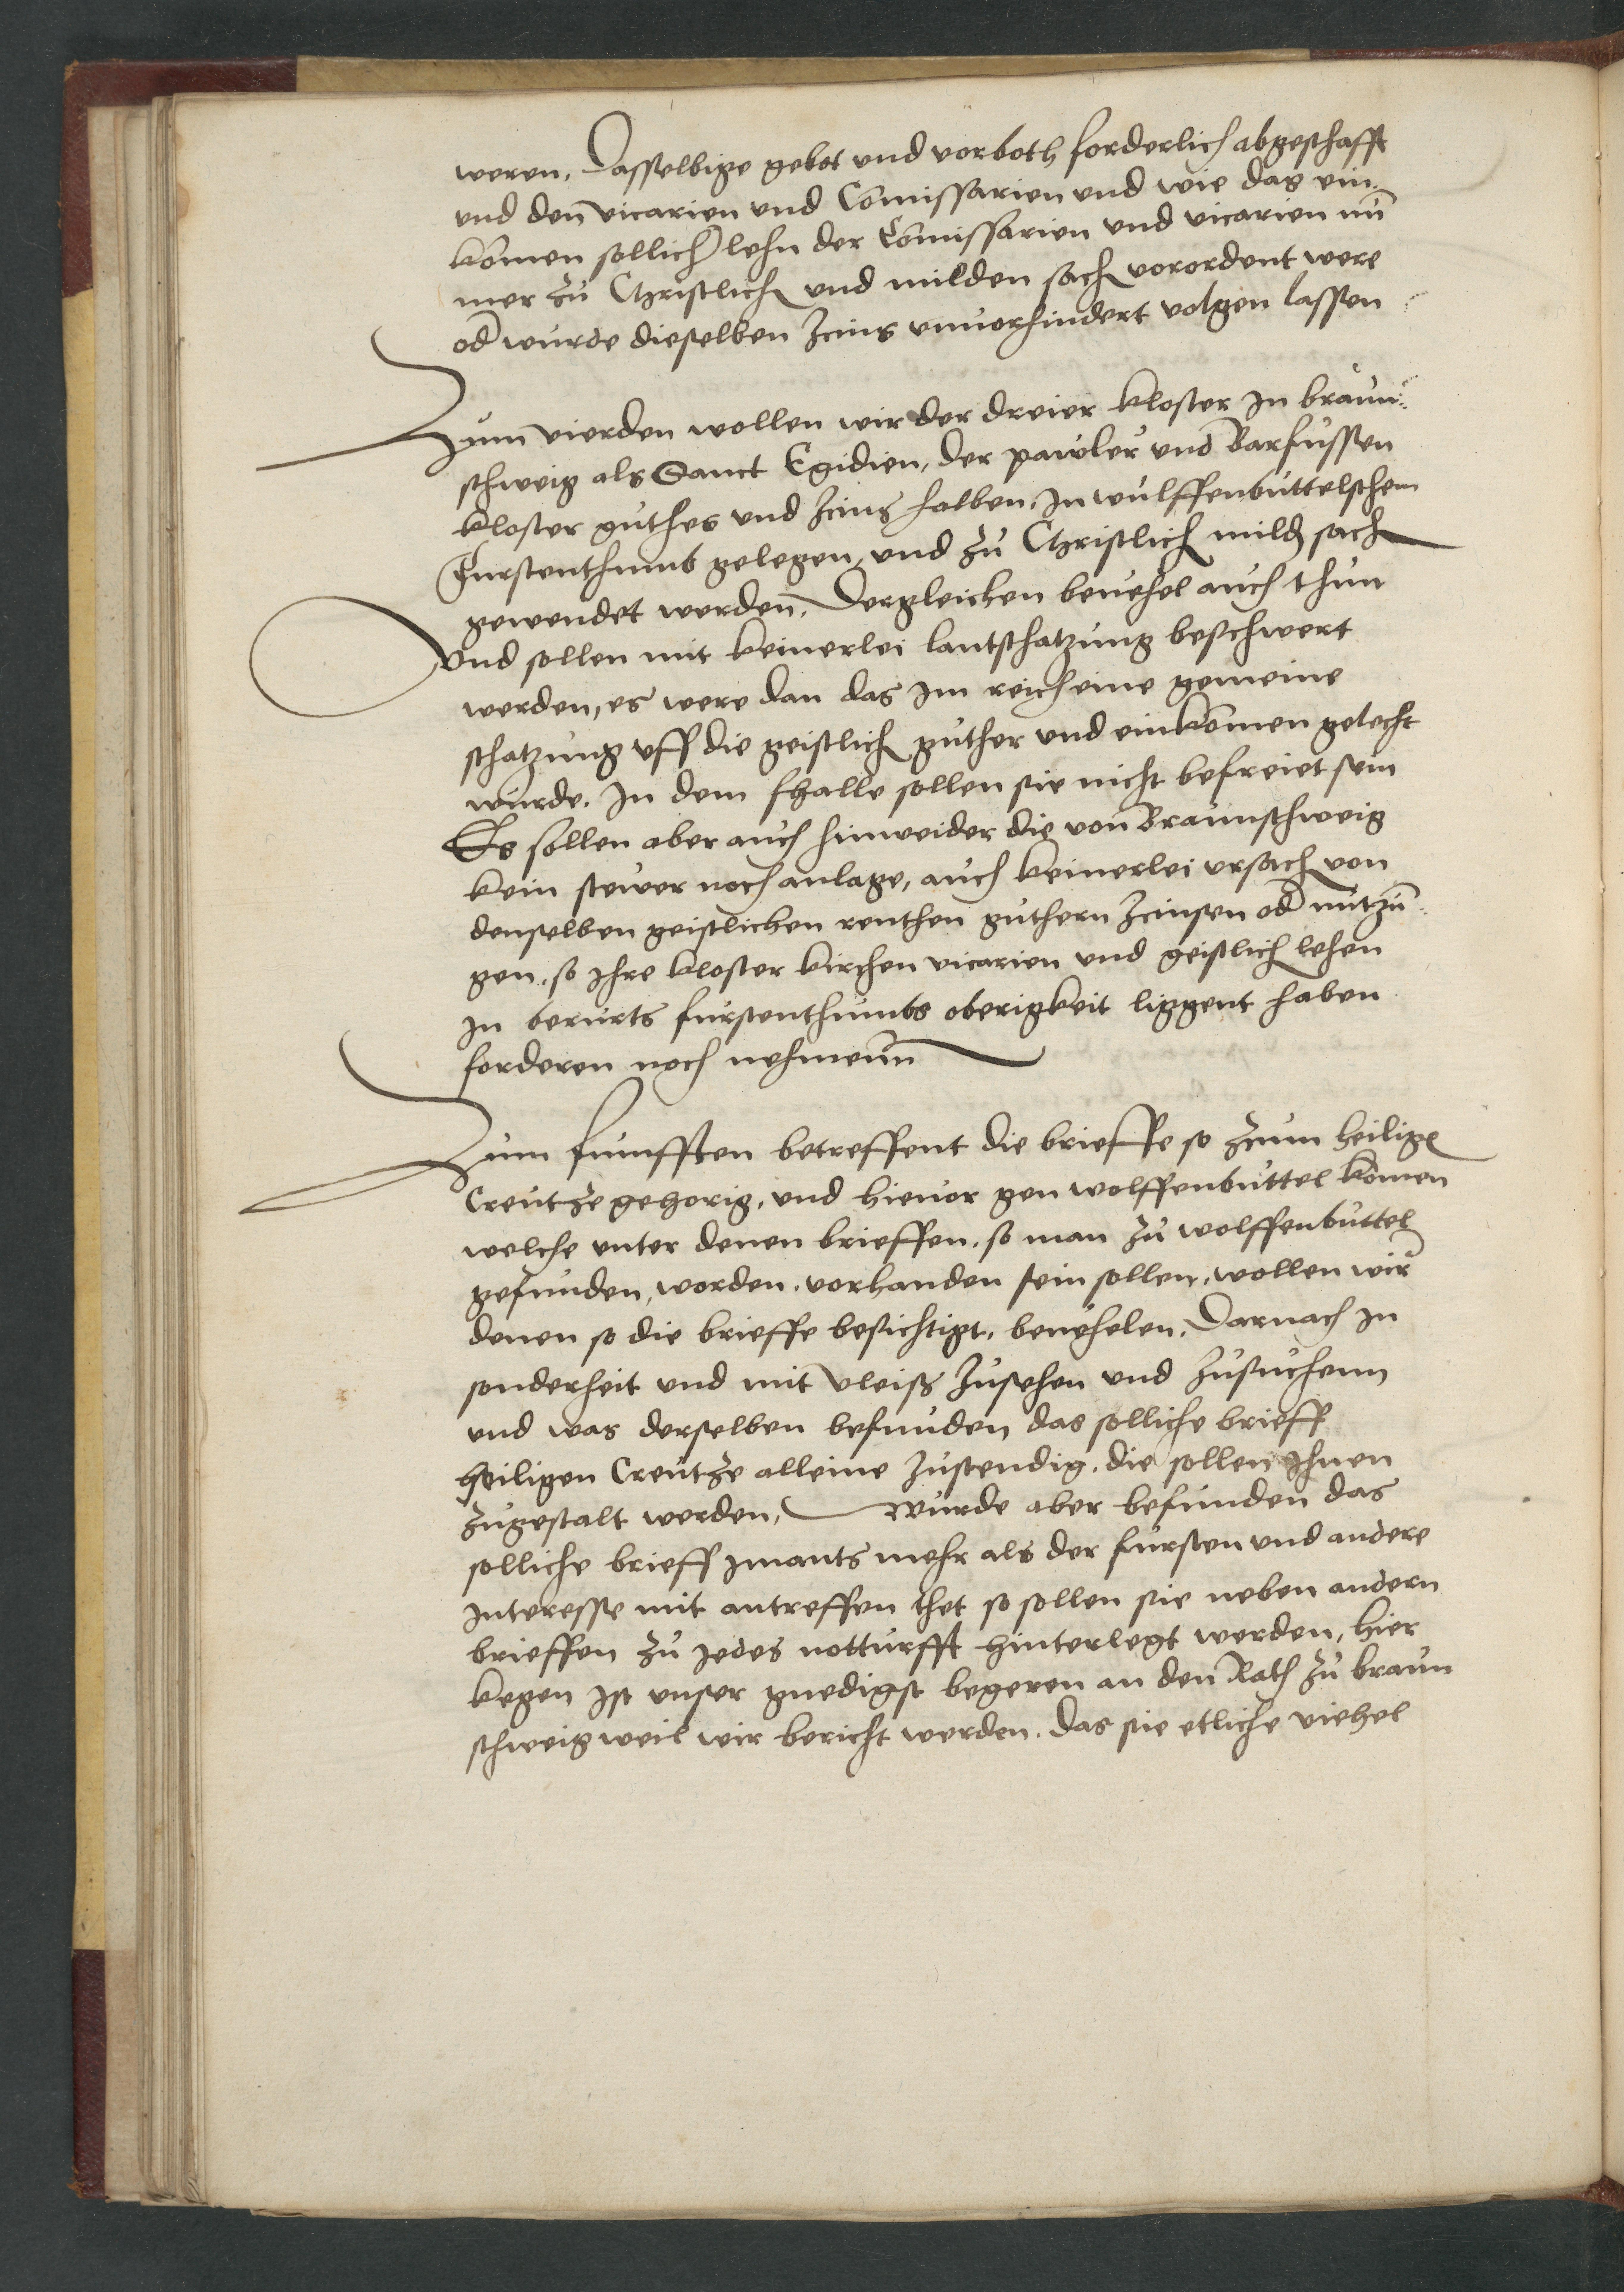 weren, Dasselbige gebot und vorboth forderlich abgeschafft
und den vicarien und Comissarien und wie das ein-
komen sollich lehn der Comissarien und vicarien nu
mer zu Christlich und milden sach vorordent were
od wurde dieselben Zcins unuorhindert volgen lassen
Zum vierden wollen wir der dreier kloster In braun-
schweig als Sanct Egidien, der pawler und Barfussen
kloster guthes und Zcins halben, In wulffenbuttelschem
Furstenthumb gelegen, und zu Christlich mild sach
gewendet werden, Dergleichen beuehel auch thun
Und sollen mit keinerlei lantschatzung beschwert
werden, es were dan das Im reich eine gemeine
schatzung uff die geistlich guther und einkomen gelecht
wurde. In dem fhalle sollen sie nicht befreiet sein
Es sollen aber auch hinweider die von Braunschweig
kein stewer noch anlage, auch keinerlei ursach von
denselben geistlichen renthen guthern Zcinsen od nutzun-
gen, so Ihre kloster kirchen vicarien und geistlich lehen
In berurts furstenthumbs oberigkeit liggent haben
forderen noch nehmenn
Zum funfften betreffent die brieffe so zcum heilige
Creutze gehorig, und hieuor gen wolffenbuttel komen
welche unter denen brieffen, so man zu wolffenbuttel
gefunden, worden, vorhanden sein sollen, wollen wir
denen so die brieffe besichtigt, beuehelen, Darnach In
sonderheit und mit vleiß zusehen und zusuchenn
und was derselben befunden das solliche brieff
heiligen Creutze alleine zustendig, die sollen Ihnen
zugestalt werden, Wurde aber befunden das
solliche brieff Imants mehr als der fursten und andere
Interesse mit antreffen thet so sollen sie neben andern
brieffen zu Jedes notturfft hinterlegt werden, hier
kegen Ist unser gnedigst begeren an den Rath zu braun
schweig weil wir bericht werden, das sie etliche viehel